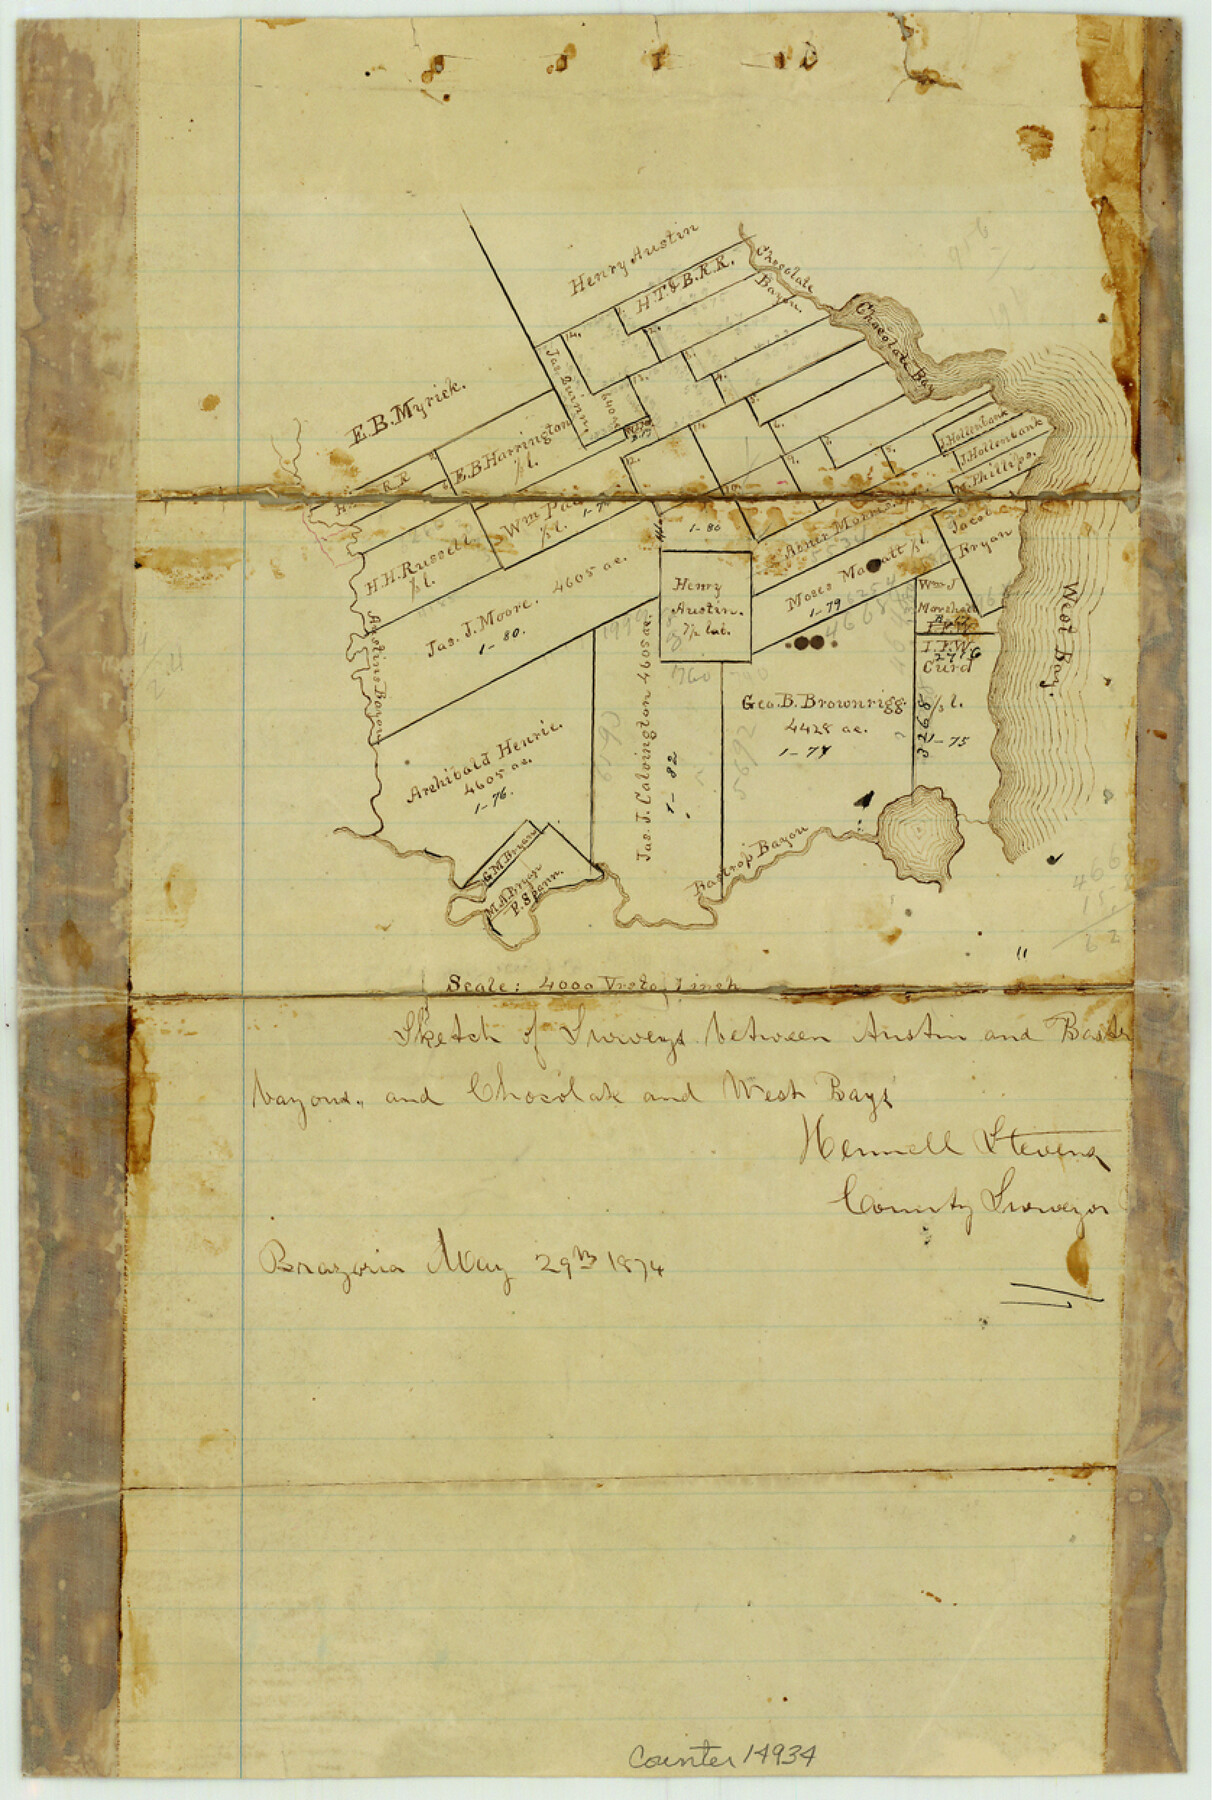 Henry Austin
H.T.&B.R.R.
Chocolate
Bayou.
Chocolate Bay
14.
2.
3.
4.
5.
6.
9.
11.
12.
13.
Jas. Quinn.
640 ac.
E.B. Myrick.
E.B. Harrington
1/3 l.
R R
J. Hollenbank
J. Hollenbank
Phillips.
Jacob
Bryan
West Bay.
H.H. Russell
1/3 l.
Wm
1/3 l.
1-80
Abner Morris.
Moses
1/3 l.
1-79
Jas. J. Moore. 4605 ac.
1-80.
Henry
Austin.
7½ lab.
Wm J
I.F.W.
Curd
1/3 l.
1-75
Austins Bayou
Archibald Henrie.
4605 ac.
1-76.
Jas. J. Calvington 4605 ac.
1-82
Geo. B. Brownrigg.
4428 ac.
1-74
5692
G.M. Bryan
M.A. Bryan
P.S.
Bastrop Bayou
466
15.
62
Scale: 4000 Vrs to 1 inch
Sketch of Surveys between Austin and
bayous, and Chocolate and West Bays
Hennell Stevens
County Surveyor
Brazoria May 29th 1874
Counter 14934